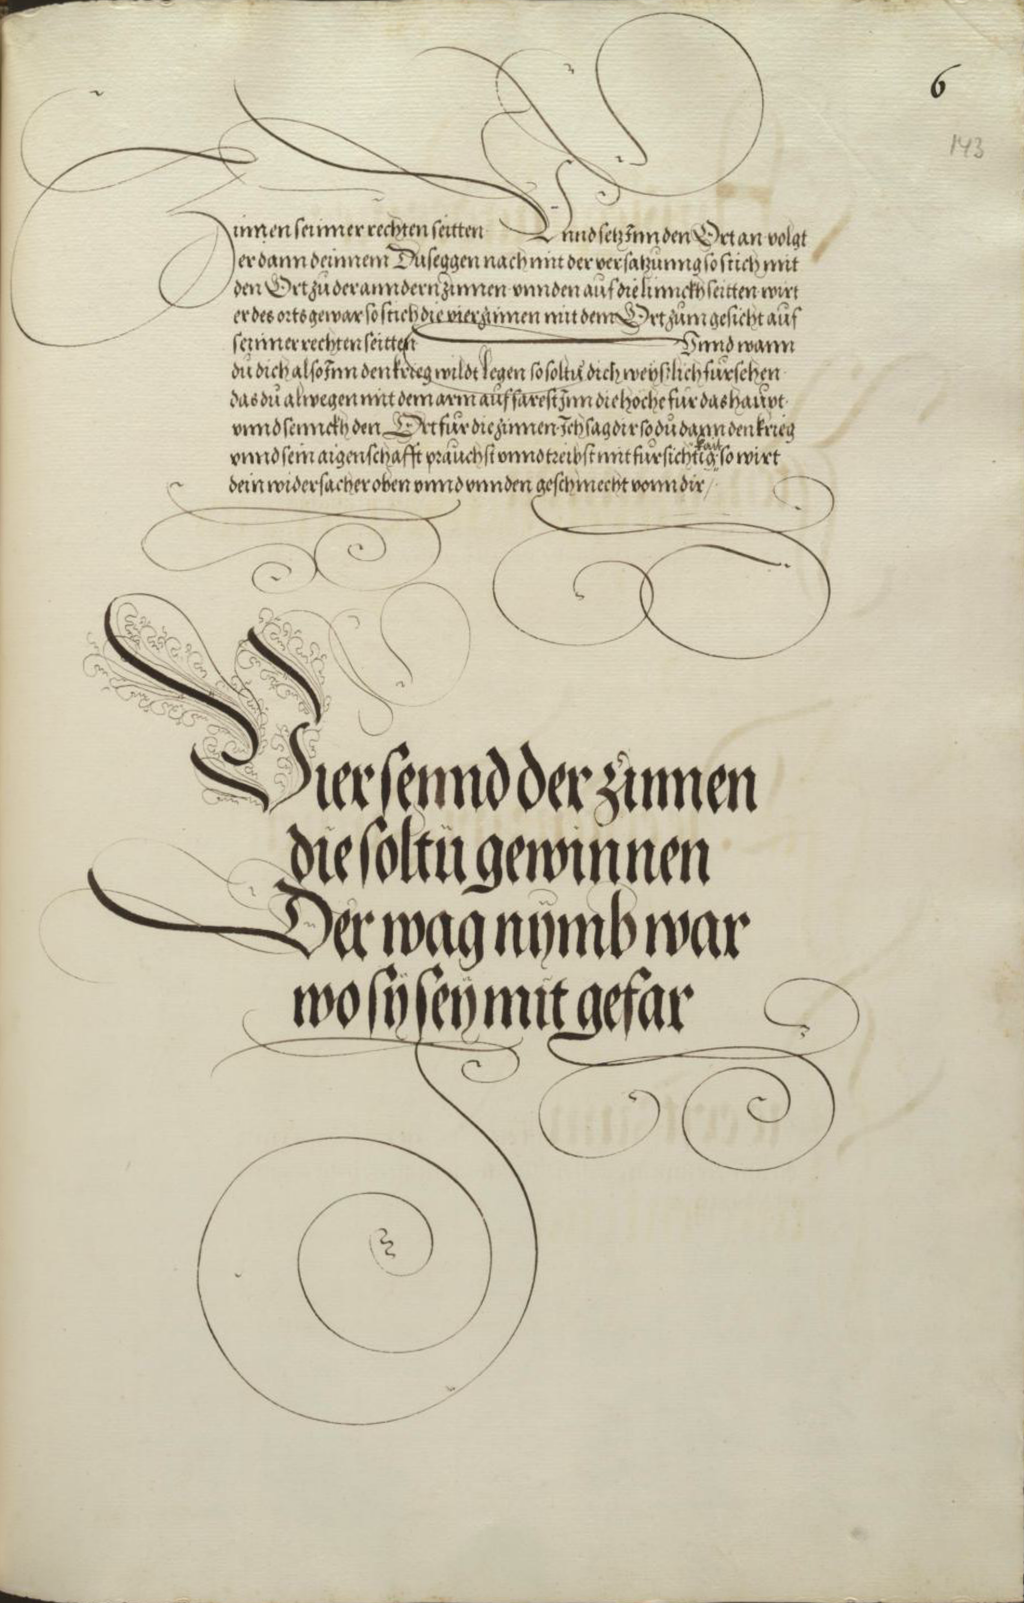 6
143
Zinnen seinner rechten seitten Vnnd setz Inn den Ort an volgt
er dann deinnem Duseggen nach mit der versatzunng so stich mit
den Ort zu der anndern zinnen vnnden auf die linnckh seitten wirt
er des orts gewar so stich die vier zinnen mit dem Ort zum gesicht auf
seinner rechten seitten Vnnd wann
du dich also Inn den krieg wildt legen so soltu dich weyslich fursehen
das du alwegen mit dem arm auf farest Inn die hoche fur das haupt
vnnd sennckh den Ort fur die zinnen Ich sag dir so du dann den krieg
vnnd sein aigenschafft prauchst vnnd treibst mit fursichtigkait so wirt
dein widersacher oben vnnd vnnden geschwecht vonn dir /
Vier sennd der zinnen
die soltu gewinnen
Der wag nÿmb war
wo sÿ seÿ mit gefar